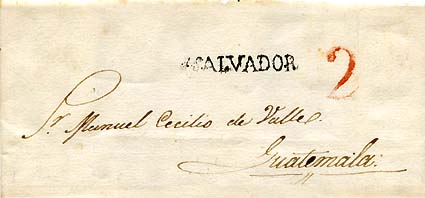 SALVADOR
2
Sr. Manuel Cecilio de Valle.
Guatemala.